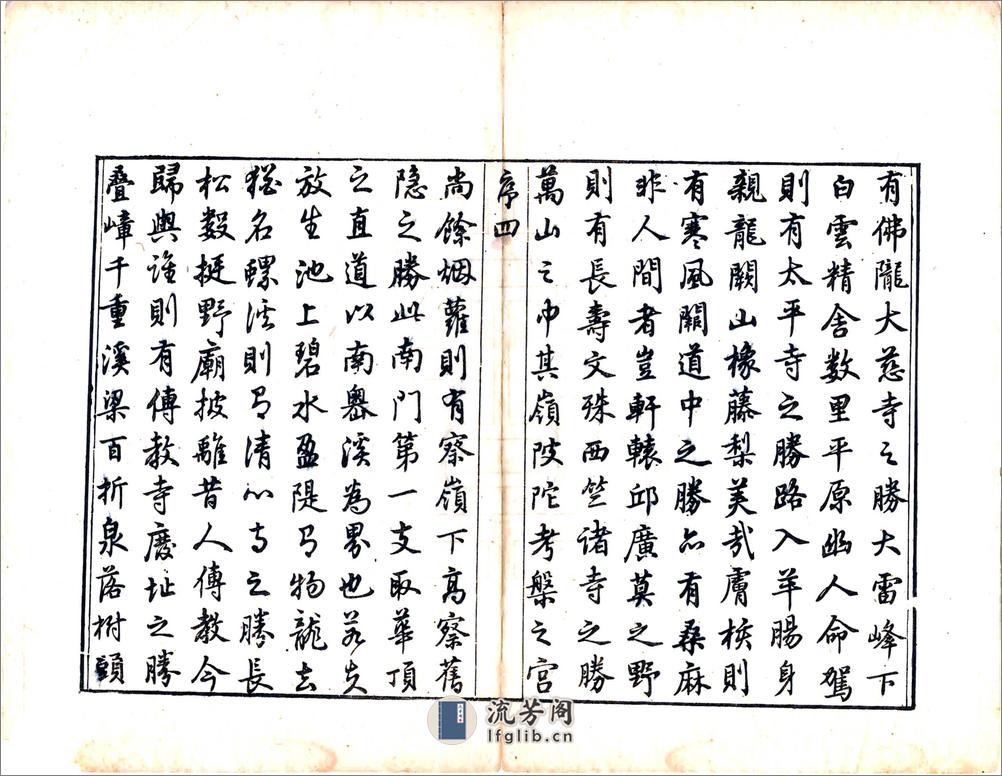 有佛隴大慈寺之勝大雷峰下
白雲精舍数里平原幽人命駕
則有太平寺之勝路入羊腸身
親龍闕山橡藤梨美哉膚核則
有寒風闕道中之勝亦有桑麻
非人間者豈軒轅邱廣莫之野
則有長壽文殊西竺诸寺之勝
萬山之中其嶺陂陀考槃之宫
序四
尚餘烟蘿則有察嶺下高察舊
隐之勝此南門第一支取華頂
之直道以南嶴溪為界也若夫
放生池上碧水盈隄乃物龍去
猶名螺溪則有清心寺之勝長
松数挺野廟披離昔人傳教今
歸與誰則有傳教寺廢址之勝
叠嶂千重溪梁百折泉落树頭
流芳阁
lfglib.cn